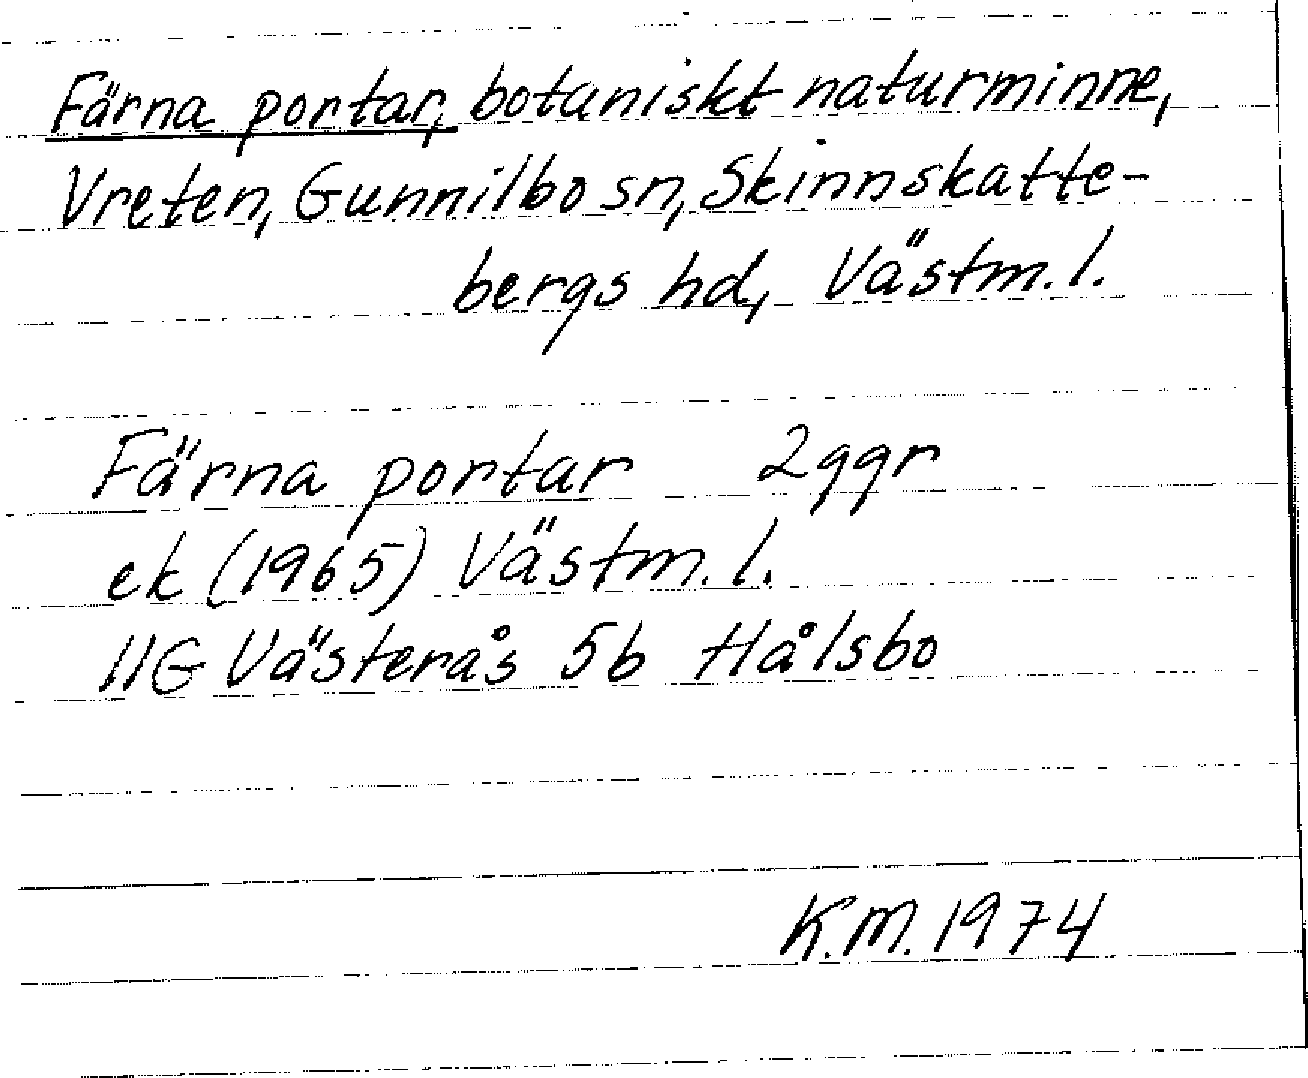 Färna portar, botaniskt naturminne,
Vreten, Gunnilbo sn, Skinnskatte-
bergs hd, Västm. l.
Färna portar 2ggr
ek (1965) Västm. l.
11G Västerås 5b Hålsbo
K.M. 1974